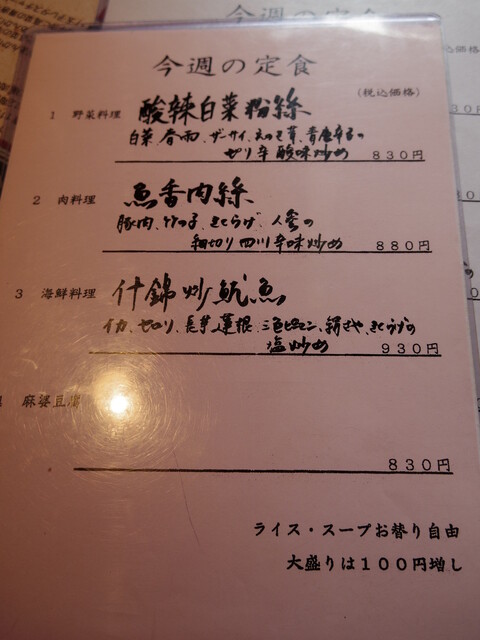 今週の定食
(税込価格)
1 野菜料理 酸辣白菜粉絲
白菜、春雨、ザーサイ、えのき茸、青唐辛子の
ピリ辛酸味炒め 830円
2 肉料理 魚香肉絲
豚肉、竹の子、きくらげ、人参の
細切り四川辛味炒め 880円
3 海鮮料理 什錦炒魷魚
イカ、セロリ、長芋、蓮根、三色ピーマン、絹さや、きくらげの
塩炒め 930円
麻婆豆腐
830円
ライス・スープお替り自由
大盛りは100円増し
今週の定食